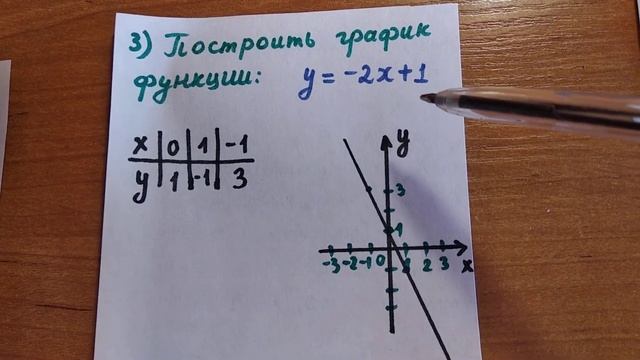 3) Построить график
функции: y = -2x+1
x 0 1 -1
y 1 -1 3
y
3
1
-3 -2 -1 0 1 2 3 x